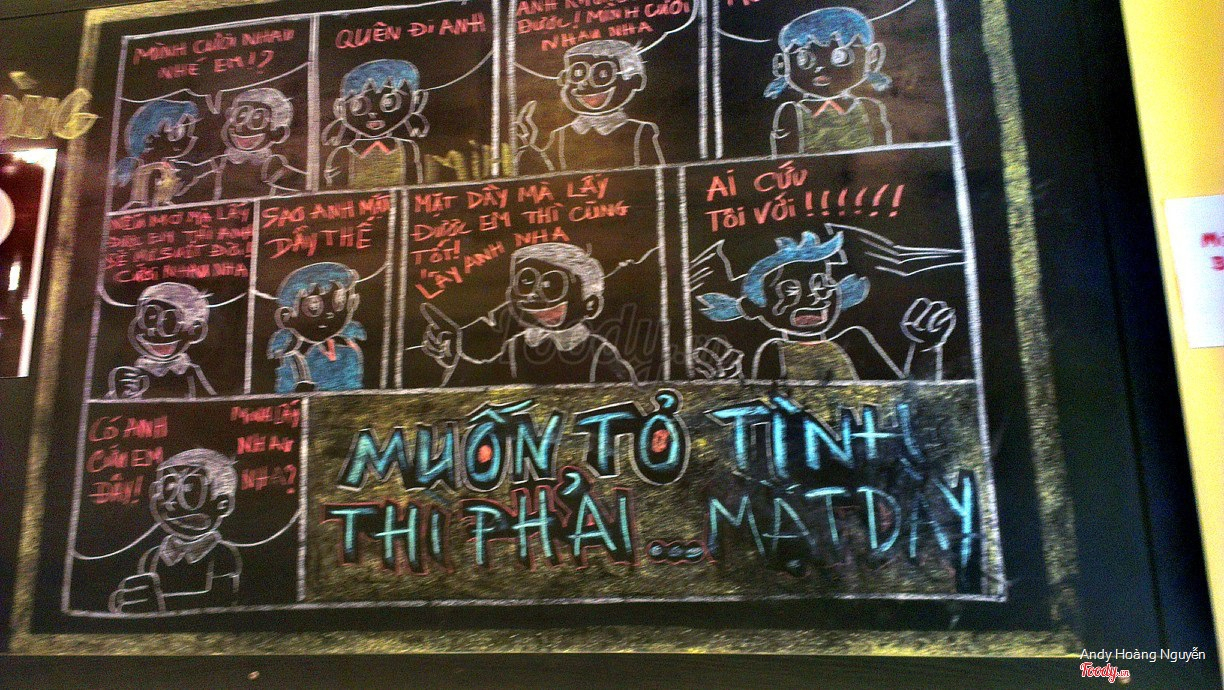 MÌNH CƯỚI NHAU
NHÉ EM!?
QUÊN ĐI ANH
ĐƯỢC! MÌNH CƯỚI
NHAU NHA
MƠ MÀ LẤY
ĐƯỢC EM THÌ ANH
SẼ MƠ SUỐT ĐỜI!
CƯỚI NHAU NHA
SAO ANH MẶT
DẦY THẾ
MẶT DẦY MÀ LẤY
ĐƯỢC EM THÌ CŨNG
TỐT!
LẤY ANH NHA
AI CỨU
TÔI VỚI!!!!!!
CÓ ANH
CỨU EM
ĐÂY!
MÌNH LẤY
NHAU
NHA?
MUỐN TỎ TÌNH
THÌ PHẢI ... MẶT DÀY
Andy Hoàng Nguyễn
Foody.vn
Foody